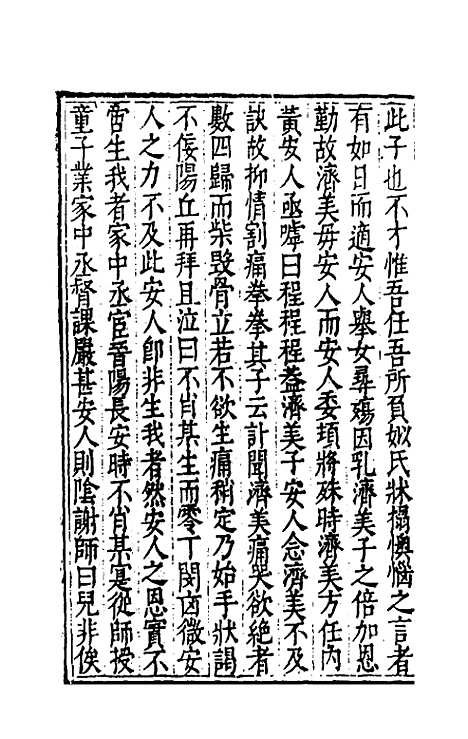 此子也不才惟吾任吾所負姒氏狀搨懊惱之言者
有如日而適安人舉女尋殤因乳濟美子之倍加恩
勤故濟美毋安人而安人委頊將殊時濟美方任内
黃安人亟嘑曰程程程葢濟美子安人念濟美不及
訣故抑情割痛拳拳其子云計聞濟美痛哭欲絶者
數四歸而柴毀骨立若不欲生痛稍定乃始手狀謁
不佞陽丘再拜且泣曰不肖某生而零丁閔凶微安
人之力不及此安人卽非生我者然安人之恩實不
啻生我者家中丞宦晉陽長安時不肖某寔從師授
童子業家中丞督課嚴甚安人則陰謝師曰兒非俟